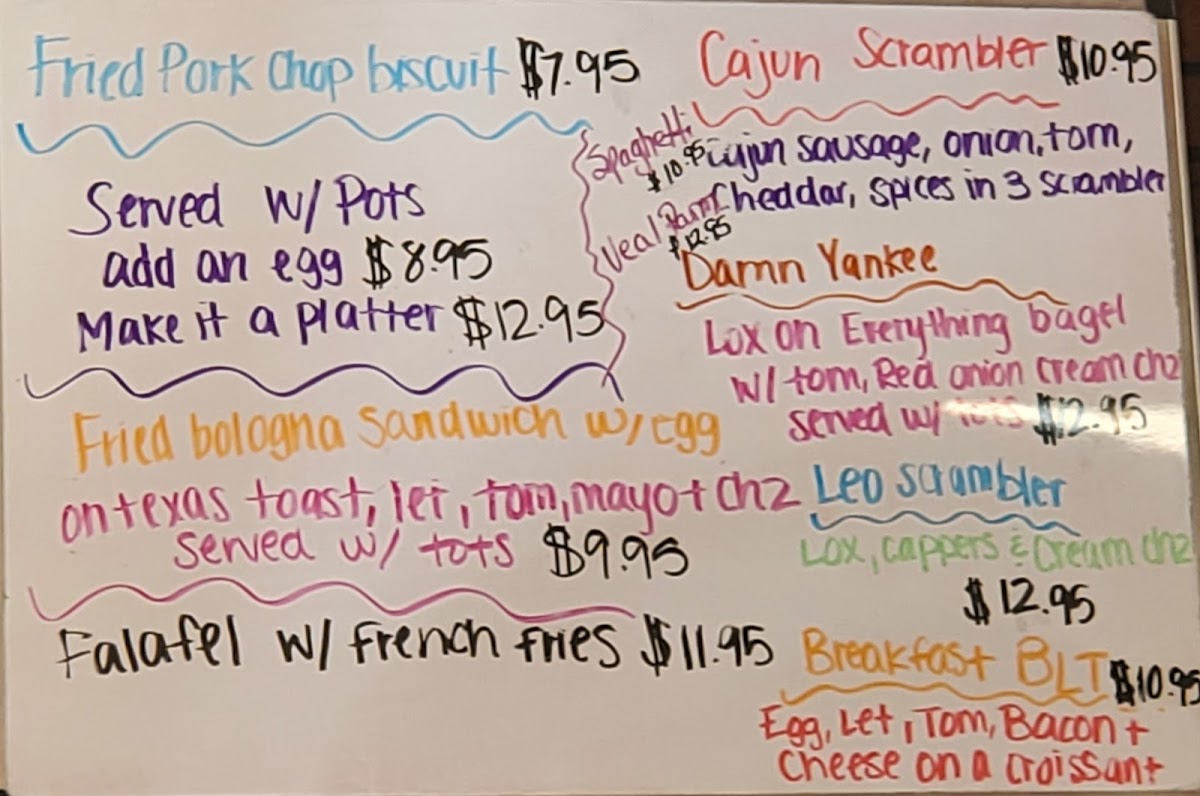 Fried Pork Chop biscuit $7.95
Served w/ Pots
add an egg $8.95
Make it a platter $12.95
Fried bologna sandwich w/egg
on texas toast, let, tom, mayo + chz
served w/ tots $9.95
Falafel w/ French fries $11.95
Spaghetti
$10.95
Veal Parm
$12.95
Cajun Scrambler $10.95
Cajun sausage, onion, tom,
Cheddar, spices in 3 scrambler
Damn Yankee
Lox on Everything bagel
w/ tom, Red onion cream chz
served w/ tots $12.95
Leo scrambler
Lox, cappers & Cream chz
$12.95
Breakfast BLT $10.95
Egg, Let, Tom, Bacon +
Cheese on a croissant